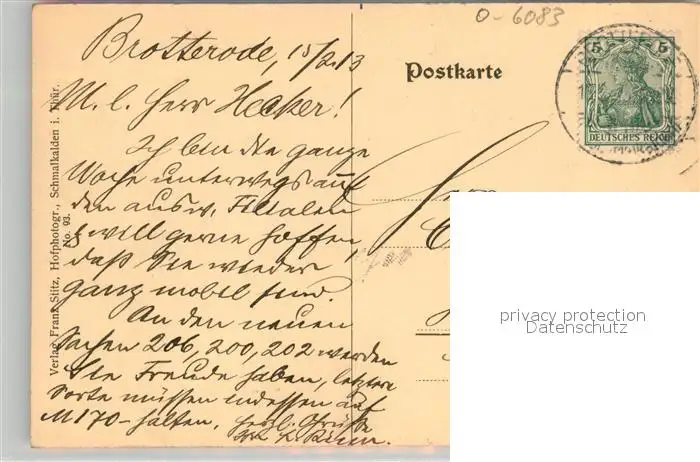 0-6083
Brotterode, 15/2.13
Postkarte
5 5
DEUTSCHES REICH
M. l. Herr Hecker!
Ich bin die ganze
Woche unterwegs auf
den ausw. Filialen
& will gerne hoffen,
daß Sie wieder
ganz mobil sind.
An den neuen
Sachen 206, 200, 202 werden
Sie Freude haben, letztere
Sorte müssen indessen auf
M 170- halten. Herzl. Grüße
Verlag Franz Stitz, Hofphotogr., Schmalkalden i. Thür.
No. 93.
privacy protection
Datenschutz